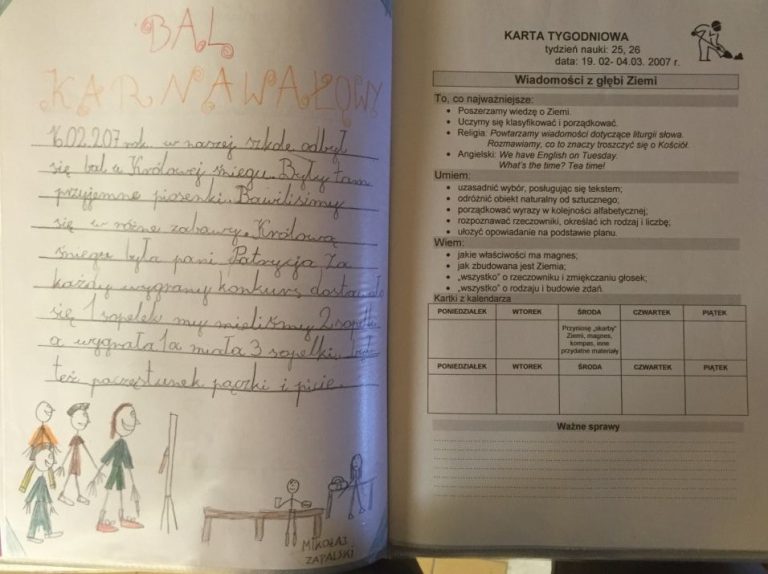 BAL
KARNAWAŁOWY
16.02.207 rok w naszej szkole odbył
się bal u Królowej śniegu. Były tam
przyjemne piosenki. Bawiliśmy
się w różne zabawy. Królową
śniegu była pani Patrycja. Za
każdy wygrany konkurs
się 1 sopelek my mieliśmy 2
a wygrała 1a miała 3 sopelki.
też poczęstunek pączki i picie.
MIKOŁAJ
ZAPALSKI
KARTA TYGODNIOWA
tydzień nauki: 25, 26
data: 19. 02- 04.03. 2007 r.
Wiadomości z głębi Ziemi
To, co najważniejsze:
• Poszerzamy wiedzę o Ziemi.
• Uczymy się klasyfikować i porządkować.
• Religia: Powtarzamy wiadomości dotyczące liturgii słowa.
Rozmawiamy, co to znaczy troszczyć się o Kościół.
• Angielski: We have English on Tuesday.
What's the time? Tea time!
Umiem:
• uzasadnić wybór, posługując się tekstem;
• odróżnić obiekt naturalny od sztucznego;
• porządkować wyrazy w kolejności alfabetycznej;
• rozpoznawać rzeczowniki, określać ich rodzaj i liczbę;
• ułożyć opowiadanie na podstawie planu.
Wiem:
• jakie właściwości ma magnes;
• jak zbudowana jest Ziemia;
• „wszystko" o rzeczowniku i zmiękczaniu głosek;
• „wszystko" o rodzaju i budowie zdań.
Kartki z kalendarza
PONIEDZIAŁEK WTOREK ŚRODA CZWARTEK PIĄTEK
Przynoszę „skarby"
Ziemi, magnes,
kompas, inne
przydatne materiały
PONIEDZIAŁEK WTOREK ŚRODA CZWARTEK PIĄTEK
Ważne sprawy